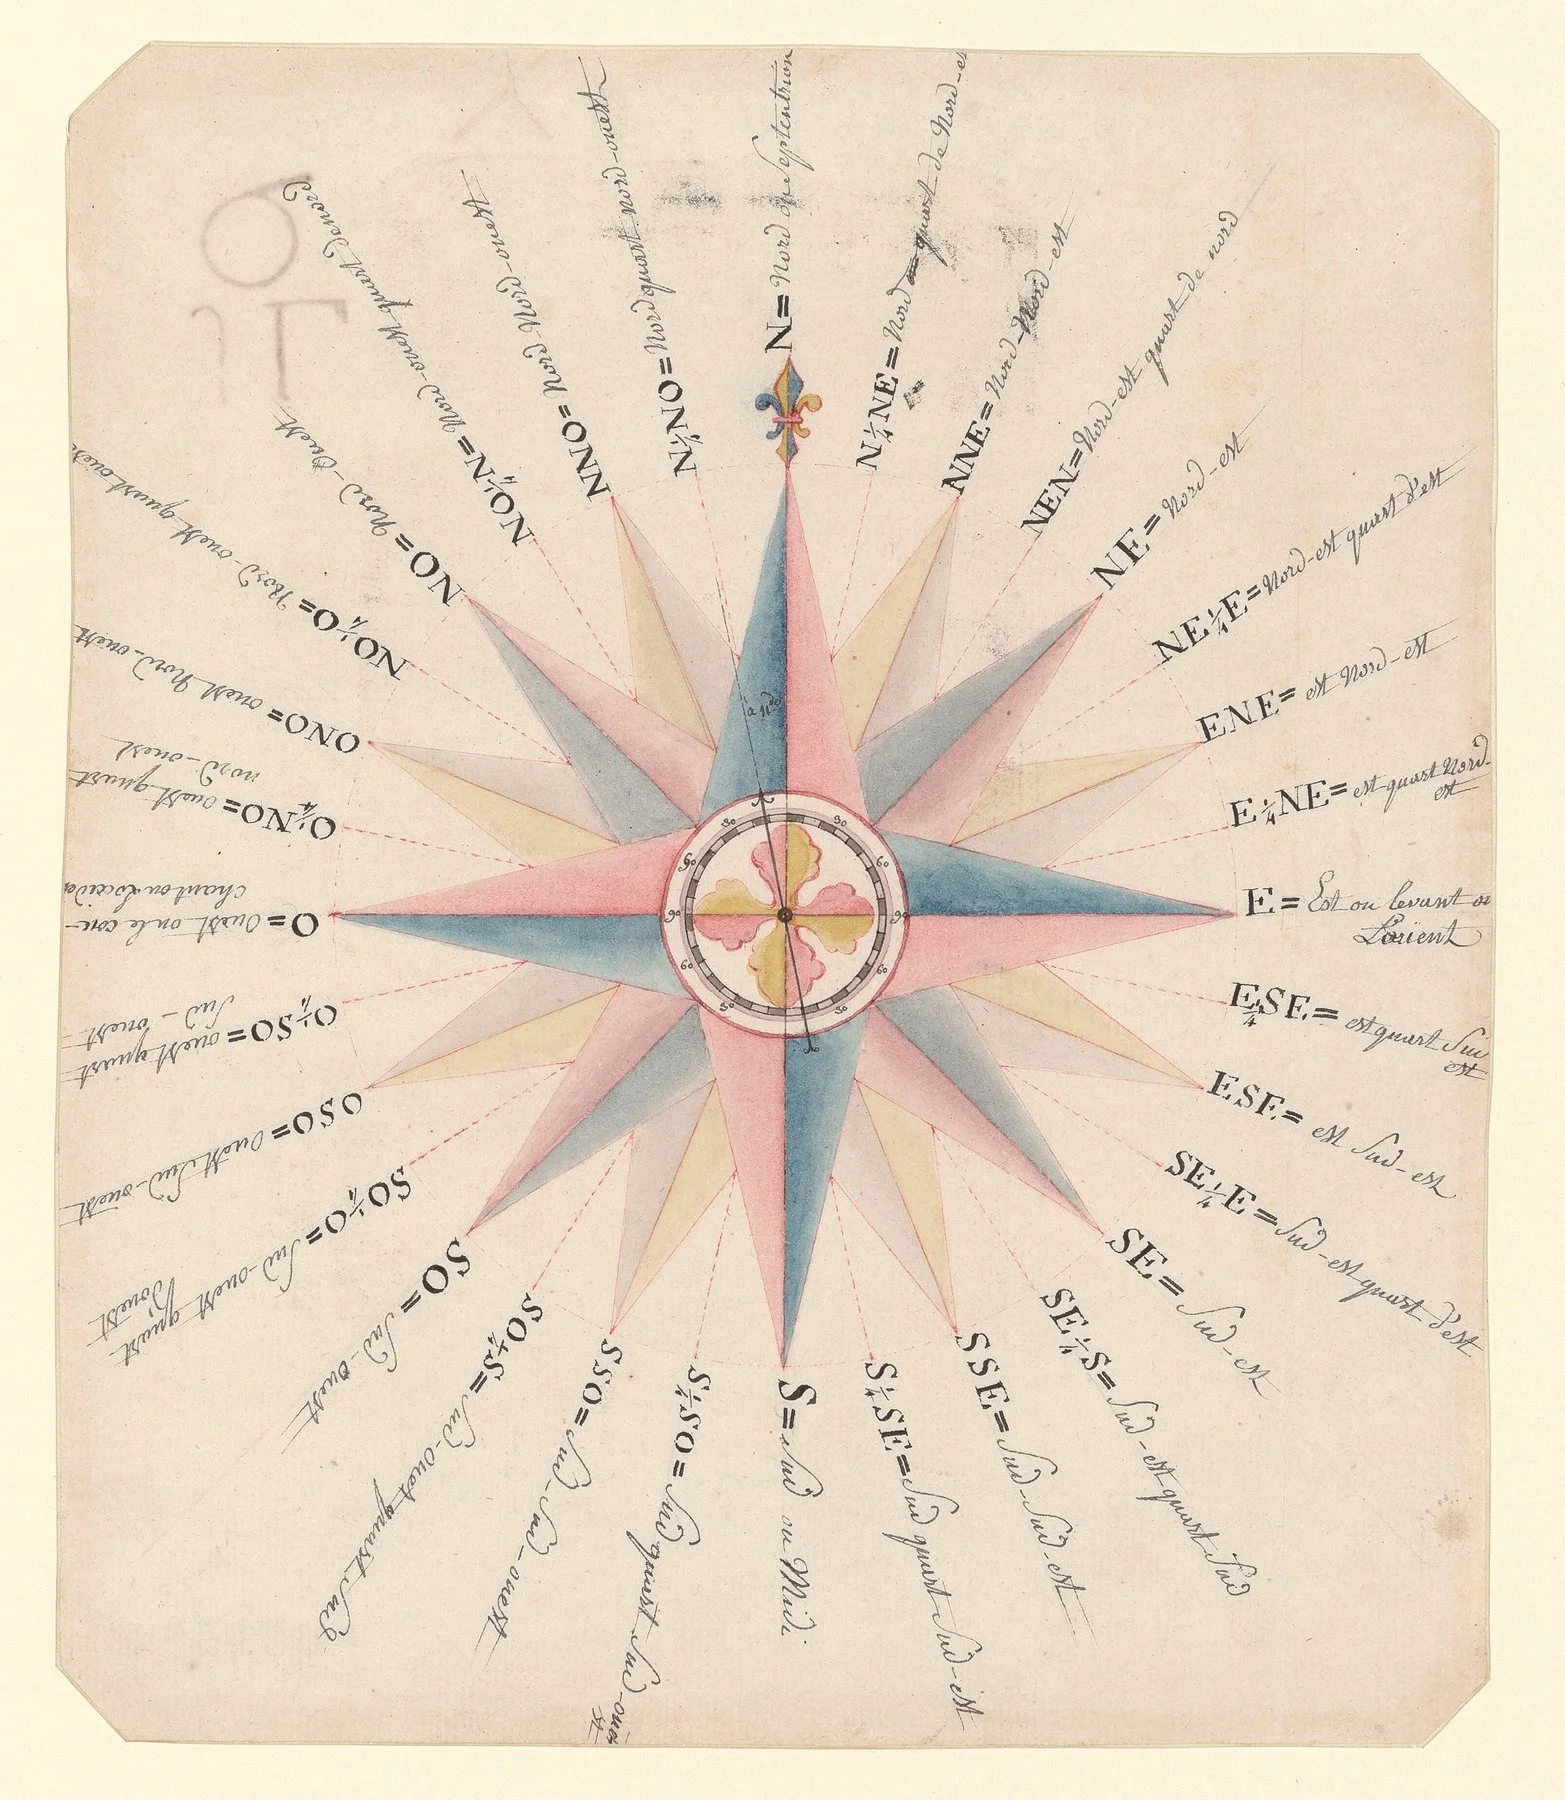 N = Nord ou Septentrion
N 1/4 NE = Nord quart de Nord-es
NNE = Nord-Nord-est
NEN = Nord-est quart de nord
NE = Nord-est
NE 1/4 E = Nord-est quart d'est
ENE = est Nord-est
E 1/4 NE = est quart Nord-
est
E = Est ou levant ou
Lorient
E 1/4 SE = est quart Sud
est
ESE = est Sud-est
SE 1/4 E = Sud-est quart d'est
SE = Sud-est
SE 1/4 S = Sud-est quart Sud
SSE = Sud-Sud-est
S 1/4 SE = Sud quart Sud-est
S = Sud ou Midi
S 1/4 SO = Sud quart Sud-oue
st
SSO = Sud-Sud-ouest
SO 1/4 S = Sud-ouest quart Sud
SO = Sud-ouest
SO 1/4 O = Sud-ouest quart
d'ouest
OSO = Ouest Sud-ouest
O 1/4 SO = ouest quart
Sud-ouest
O = Ouest ou le cou-
chant ou Loccida
O 1/4 NO = ouest quart
nord-ouest
ONO = ouest Nord-ouest
NO 1/4 O = Nord-ouest quart ouest
NO = Nord-Ouest
NO 1/4 N = Nord-ouest quart de nord
NNO = Nord Nord-ouest
N 1/4 NO = Nord quart nord-ouest
30
60
90
60
30
30
60
90
60
30